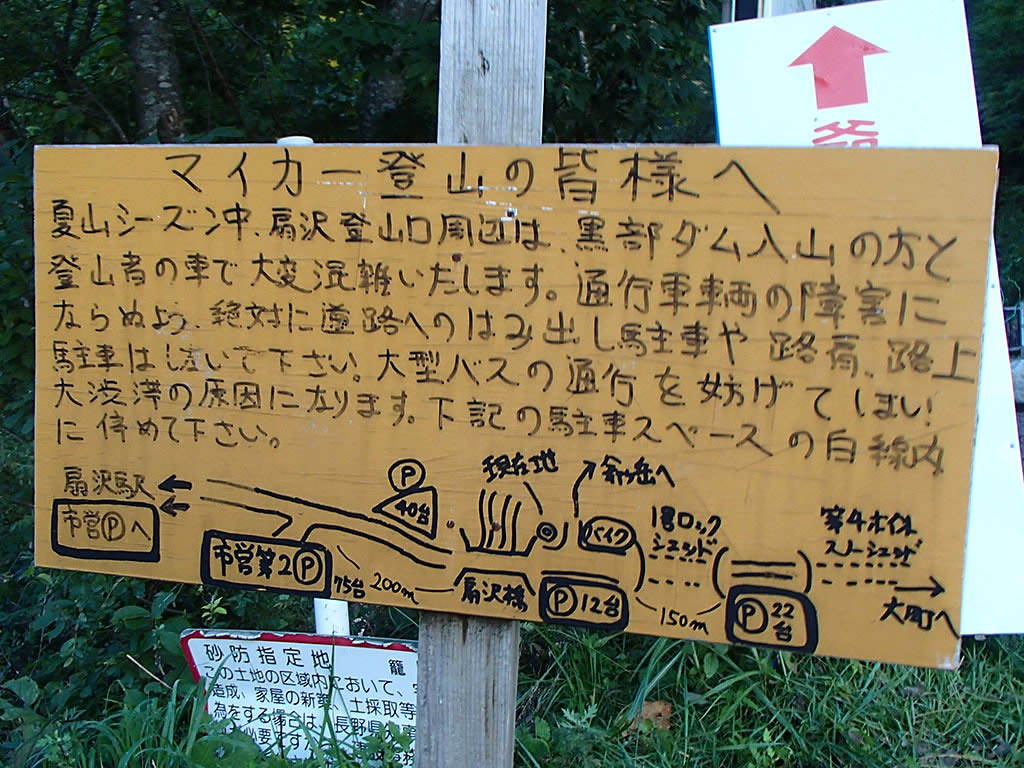 マイカー登山の皆様へ
夏山シーズン中、扇沢登山口周辺は、黒部ダム入山の方と
登山者の車で大変混雑いたします。通行車車両の障害に
ならぬよう、絶対に道路へのはみ出し駐車や路肩、路上
駐車はしないで下さい。大型バスの通行を妨げてしまい!
大渋滞の原因になります。下記の駐車スペースの白線内
に停めて下さい。
扇沢駅
市営Ⓟへ
市営第2Ⓟ
75台
200m
Ⓟ
40台
現在地
扇沢橋
Ⓟ12台
バイク
爺ヶ岳へ
1号ロック
シェッド
150m
Ⓟ22
台
大町へ
砂防指定地 籠
この土地の区域内において、
造成、家屋の新築、土採取等
為をする場合は、長野県知